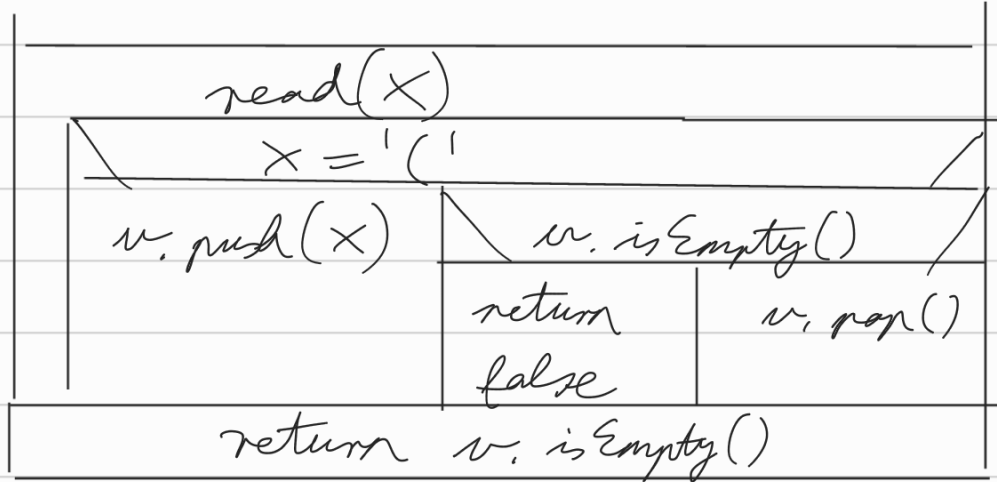 read(x)
x = '('
v.push(x)
v.isEmpty()
return
false
v.pop()
return v.isEmpty()